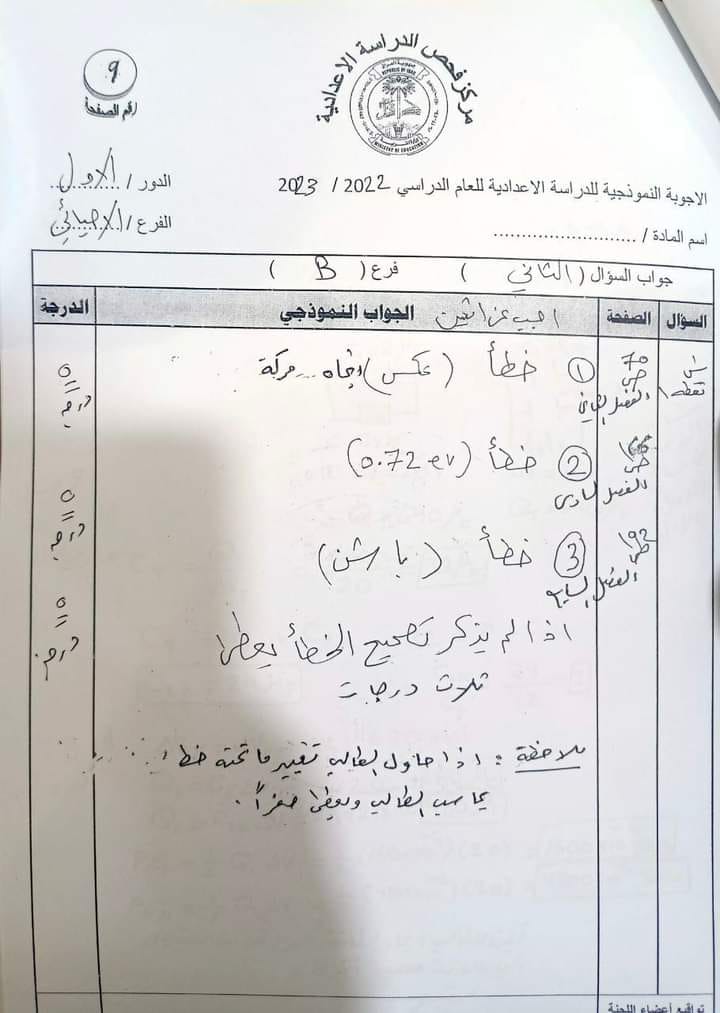 مركز فحص الدراسة الاعدادية
REPUBLIC OF IRAQ
MINISTRY OF EDUCATION
٩
رقم الصفحة
الاجوبة النموذجية للدراسة الاعدادية للعام الدراسي 2022 / 2023
الدور / الاول
اسم المادة / ........................
الفرع / الاحيائي
جواب السؤال ( الثاني ) فرع ( B )
السؤال الصفحة الجواب النموذجي اجب عن اثنين الدرجة
نقطة ١
٧٠ ص الفصل الثاني
① خطأ (عكس) اتجاه ... حركة
٥ درجة
١٦٦ ص الفصل السادس
② خطأ (0.72 ev)
٥ درجة
١٩٢ ص الفصل السابع
③ خطأ (باشن)
٥ درجة
اذا لم يذكر تصحيح الخطأ يعطى
ثلاث درجات
ملاحظة : اذا حاول الطالب تغيير ما تحته خط
يحاسب الطالب ويعطى صفراً .
تواقيع أعضاء اللجنة